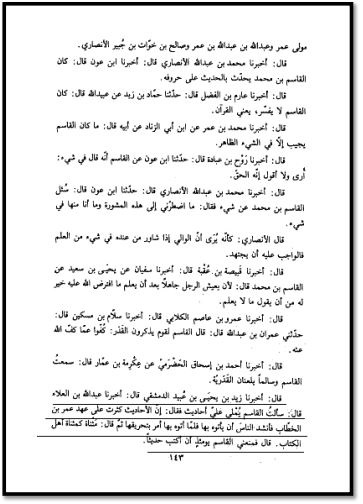 مولى عمر وعبدالله بن عبدالله بن عمر وصالح بن خوّات بن جُبير الأنصاري.
قال: أخبرنا محمد بن عبدالله الأنصاري قال: أخبرنا ابن عون قال: كان
القاسم بن محمد يحدّث بالحديث على حروفه.
قال: أخبرنا عارم بن الفضل قال: حدّثنا حمّاد بن زيد عن عبيدالله قال: كان
القاسم لا يفسّر، يعني القرآن.
قال: أخبرنا محمد بن عمر عن ابن أبي الزناد عن أبيه قال: ما كان القاسم
يجيب إلّا في الشيء الظاهر.
قال: أخبرنا رَوْح بن عبادة قال: حدّثنا ابن عون عن القاسم أنّه قال في شيء:
أرى ولا أقول إنّه الحقّ.
قال: أخبرنا محمد بن عبدالله الأنصاري قال: حدّثنا ابن عون قال: سُئل
القاسم بن محمد عن شيء فقال: ما اضطرّني إلى هذه المشورة وما أنا منها في
شيء.
قال الأنصاري: كأنّه يُرَى أنّ الوالي إذا شاور من عنده في شيء من العلم
فالواجب عليه أن يجتهد.
قال: أخبرنا قَبيصة بن عُقْبة قال: أخبرنا سفيان عن يحيَى بن سعيد عن
القاسم بن محمد قال: لأن يعيش الرجل جاهلًا بعد أن يعلم ما افترض الله عليه خير
له من أن يقول ما لا يعلم.
قال: أخبرنا عمرو بن عاصم الكلابي قال: أخبرنا سلّام بن مسكين قال:
حدّثني عمران بن عبدالله قال: قال القاسم لقوم يذكرون القَدَر: كُفّوا عمّا كفّ الله
عنه.
قال: أخبرنا أحمد بن إسحاق الحَضْرَميّ عن عِكْرِمة بن عمّار قال: سمعتُ
القاسم وسالماً يلعنان القَدَرِيّة.
قال: أخبرنا زيد بن يحيَى بن عبيد الدمشقي قال: أخبرنا عبدالله بن العلاء
قال: سألتُ القاسم يُمْلي عليّ أحاديث فقال: إنّ الأحاديث كثرت على عهد عمر بن
الخطّاب فأنشد الناسَ أن يأتوه بها فلمّا أتوه بها أمر بتحريقها ثمّ قال: مَثناة كمثناة أهل
الكتاب. قال فمنعني القاسم يومئذٍ أن أكتب حديثاً.
١٤٣